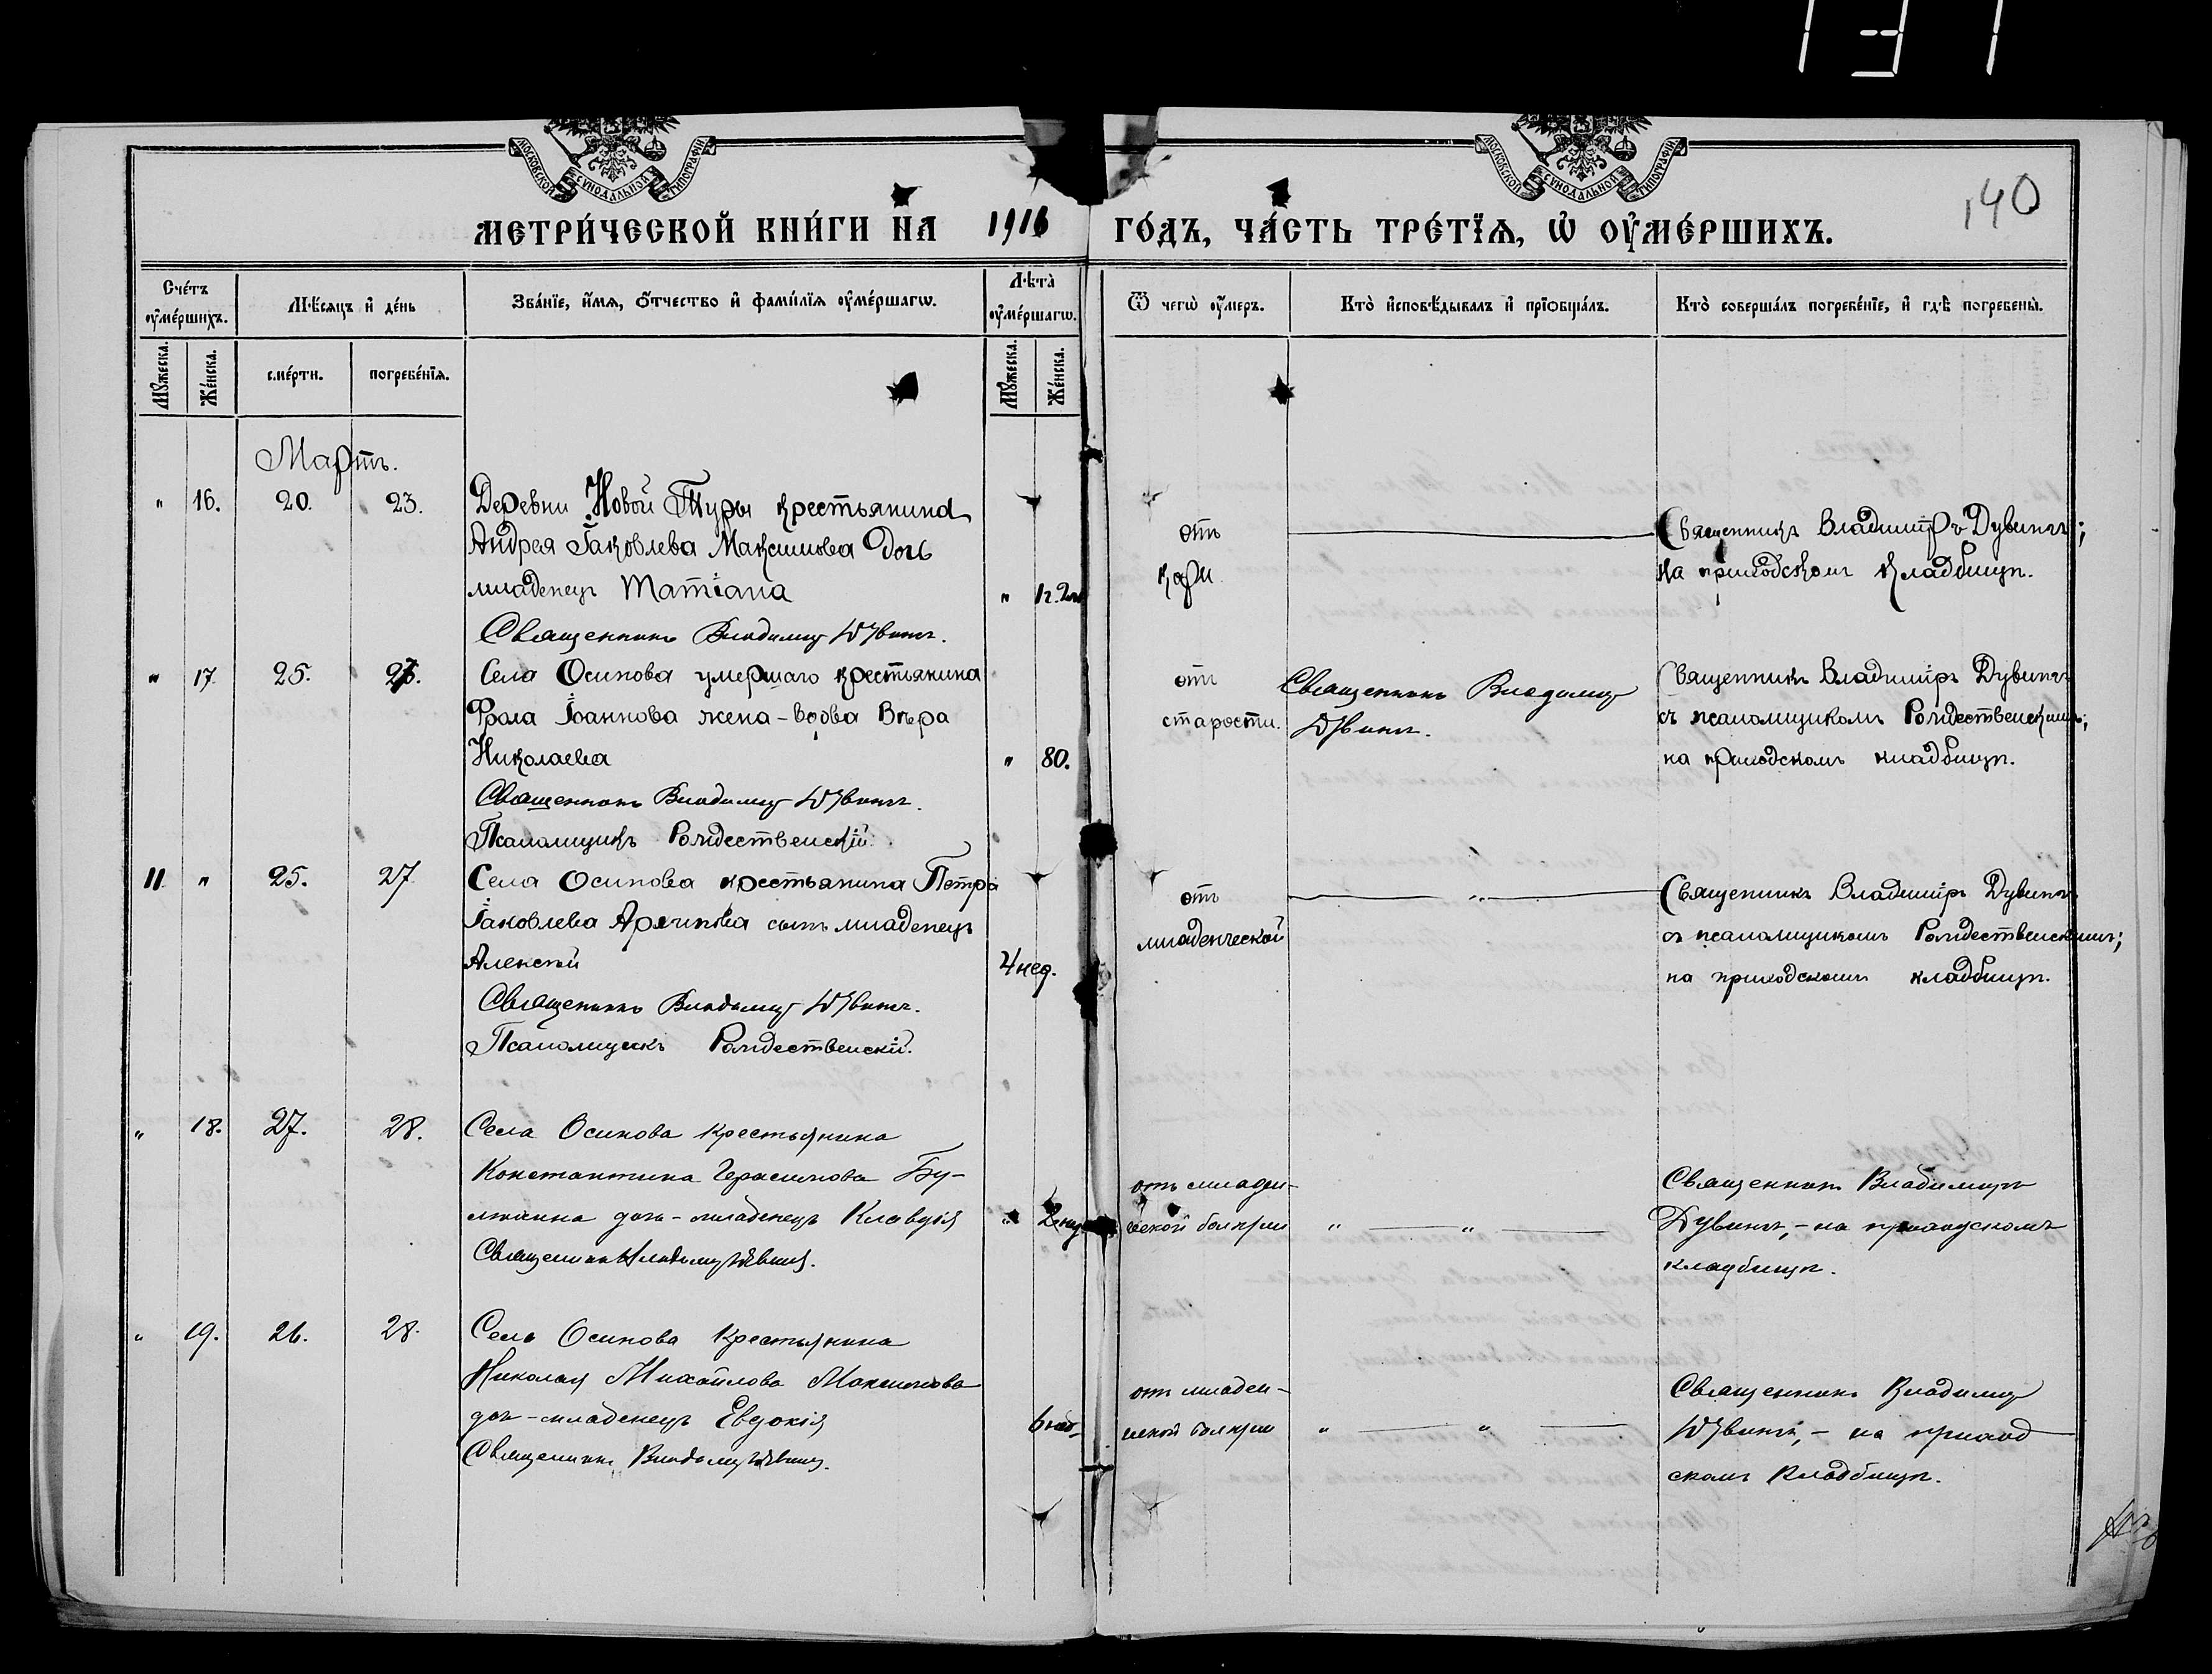 131
140
МОСКОВСКОЙ СУНОДАЛЬНОЙ ТИПОГРАФІИ
МОСКОВСКОЙ СУНОДАЛЬНОЙ ТИПОГРАФІИ
МЕТРИ́ЧЕСКОЙ КНИ́ГИ НА 1916 ГО́ДЪ, ЧА́СТЬ ТРЕ́ТЇѦ, Ѡ҆ ОУ҆МЕ́РШИХЪ.
Сче́тъ оу҆ме́ршихъ.
Мѣ́сяцъ и҆ де́нь
Зва́нїе, и҆́мѧ, ѻ҆́тчество и҆ фами́лїѧ оу҆ме́ршагѡ.
Лѣта̀ оу҆ме́ршагѡ.
Ѿ чегѡ̀ оу҆́меръ.
Кто̀ и҆сповѣ́дывалъ и҆ прїѻбща́лъ.
Кто̀ соверша́лъ погребе́нїе, и҆ гдѣ̀ погребены̀.
Мꙋ́жеска.
Же́нска.
сме́рти.
погребе́нїѧ.
Мꙋ́жеска.
Же́нска.
Мартъ.
" 16. 20. 23. Деревни Новой Туры крестьянина
Андрея Іаковлева Максимова дочь
младенецъ Татіана " 1г. 2м.
Священникъ Владимиръ Дувинъ.
отъ
кори
Священникъ Владиміръ Дувинъ;
на приходскомъ кладбищѣ.
" 17. 25. 27. Села Осинова умершаго крестьянина
Фрола Іоаннова жена-вдова Вѣра
Николаева " 80.
Священникъ Владимиръ Дувинъ.
Псаломщикъ Рождественскій.
отъ
старости.
Священникъ Владимиръ
Дувинъ.
Священникъ Владиміръ Дувинъ
съ псаломщикомъ Рождественскимъ;
на приходскомъ кладбищѣ.
11. " 25. 27 Села Осинова крестьянина Петра
Іаковлева сынъ младенецъ
Алексѣй 4 нед.
Священникъ Владимиръ Дувинъ.
Псаломщикъ Рождественскій.
отъ
младенческой
"
Священникъ Владиміръ Дувинъ
съ псаломщикомъ Рождественскимъ;
на приходскомъ кладбищѣ.
" 18. 27. 28. Села Осинова крестьянина
Константина Герасимова Бу-
дочь-младенецъ Клавдія "
Священникъ Владимиръ Дувинъ.
отъ младен-
ческой болѣзни
" "
Священникъ Владимиръ
Дувинъ, - на приходскомъ
кладбищѣ.
" 19. 26. 28. Села Осинова крестьянина
Николая Михайлова Максимова
дочь-младенецъ Евдокія 6 нед.
Священникъ Владимиръ Дувинъ.
отъ младен-
ческой болѣзни
" "
Священникъ Владимиръ
Дувинъ, - на приход
скомъ кладбищѣ.